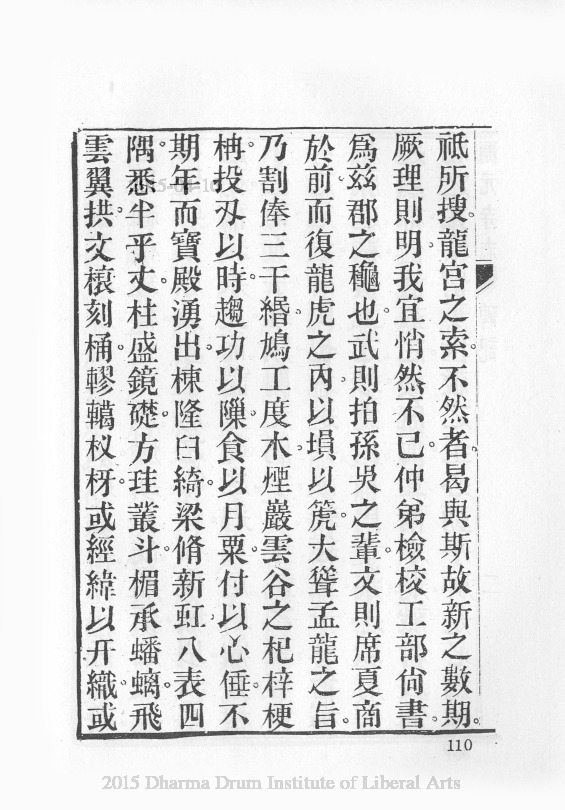 祗所搜。龍宮之索。不然者。曷與斯故新之數期。
厥理則明。我宜悄然不已。仲弟檢校工部尙書
爲茲郡之龝也。武則拍孫吳之輩。文則席夏商
於前而復龍虎之內。以塤以篪。大聳孟龍之旨。
乃割俸三千緡。鳩工度木。煙巖雲谷之杞梓梗
柟投刄以時。趨功以隟。食以月粟。付以心倕。不
期年而寶殿湧出。棟隆臼綺。梁脩新虹。八表四
隅。悉半乎丈。柱盛鏡礎。方珪叢斗。楣承蟠螭。飛
雲翼拱。文榱刻桷。轇轕杈枒。或經緯以幵織。或
110
2015 Dharma Drum Institute of Liberal Arts